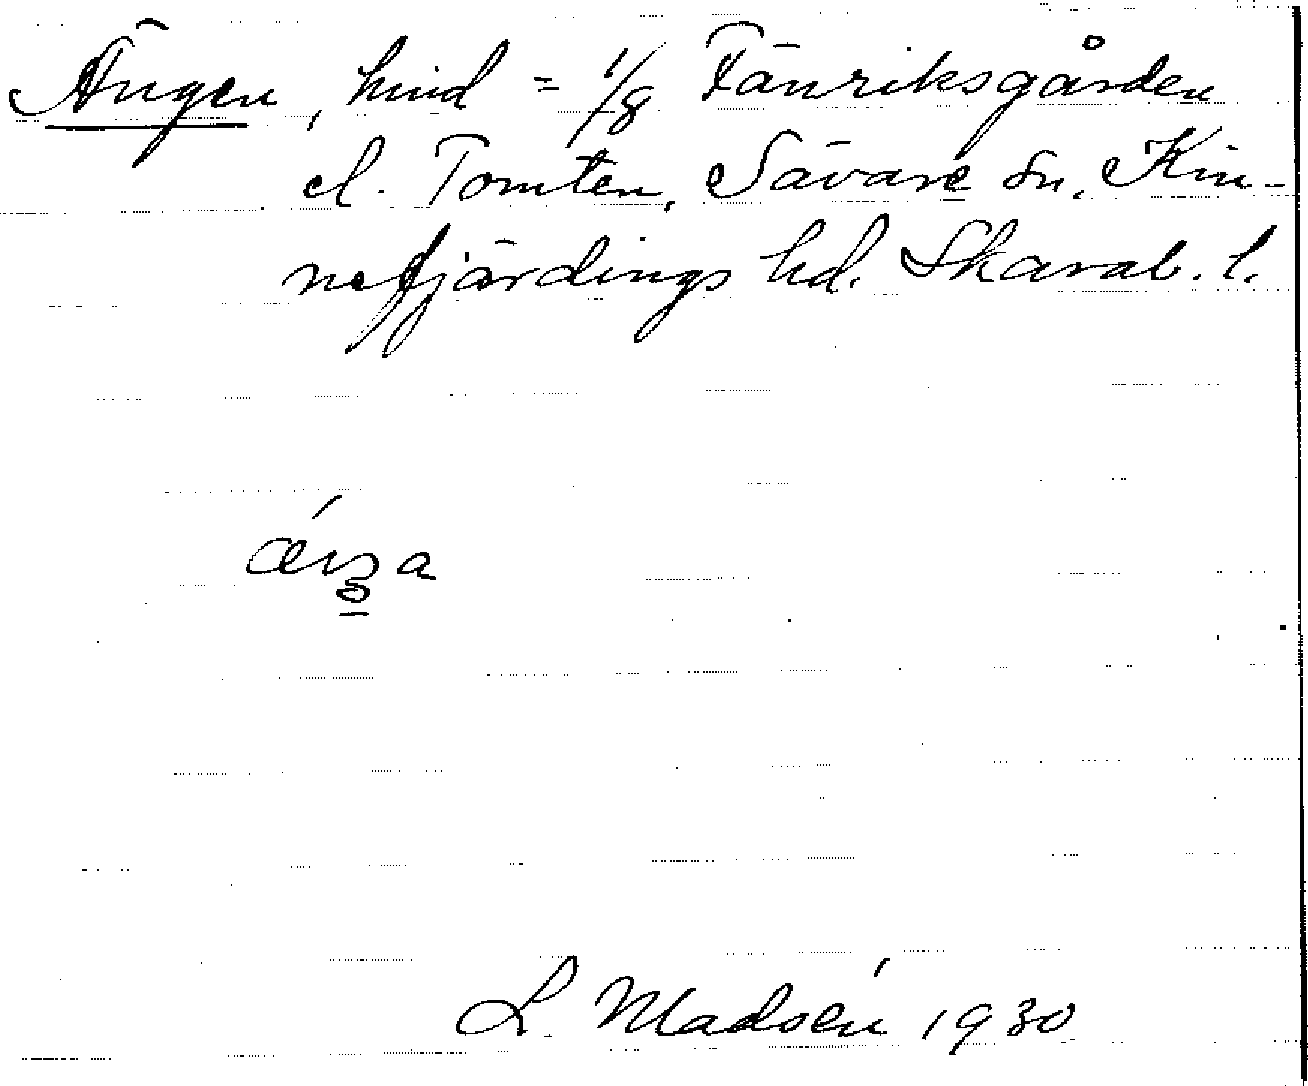 Ängen, hmd = 1/8 Fänriksgården
el. Tomten, Sävare sn, Kin-
nefjärdings hd. Skarab. l.
L. Madsén 1930